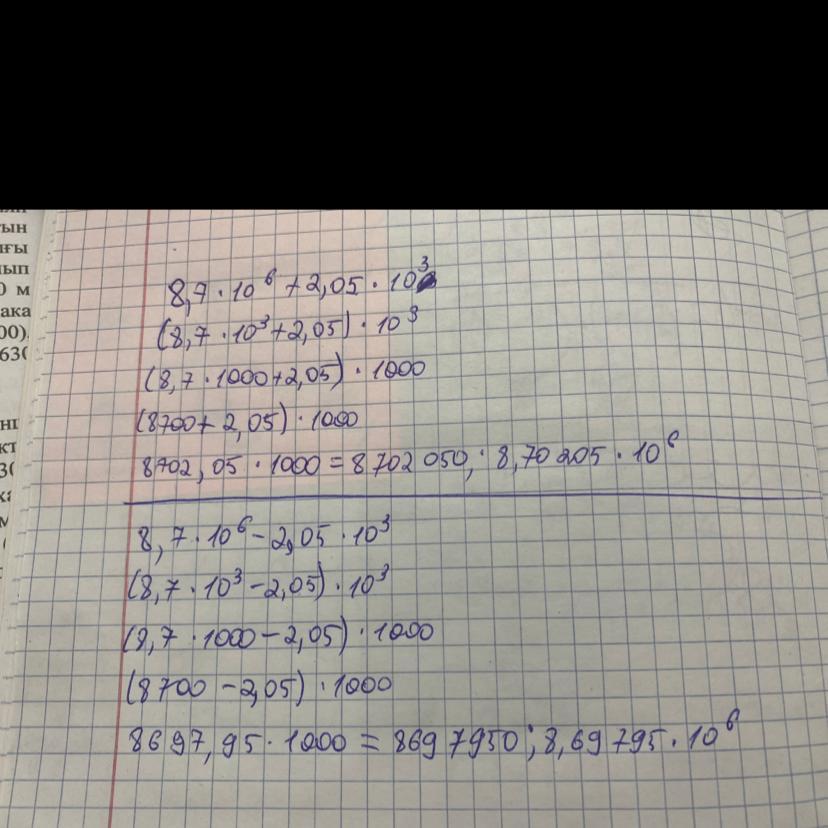 ын
ығы
ып
0 м
ака
00).
630
8,7 · 10⁶ + 2,05 · 10³
(8,7 · 10³ + 2,05) · 10³
(8,7 · 1000 + 2,05) · 1000
(8700 + 2,05) · 1000
8702,05 · 1000 = 8702 050; 8,70205 · 10⁶
8,7 · 10⁶ - 2,05 · 10³
(8,7 · 10³ - 2,05) · 10³
(8,7 · 1000 - 2,05) · 1000
(8700 - 2,05) · 1000
8697,95 · 1000 = 8697950; 8,69795 · 10⁶